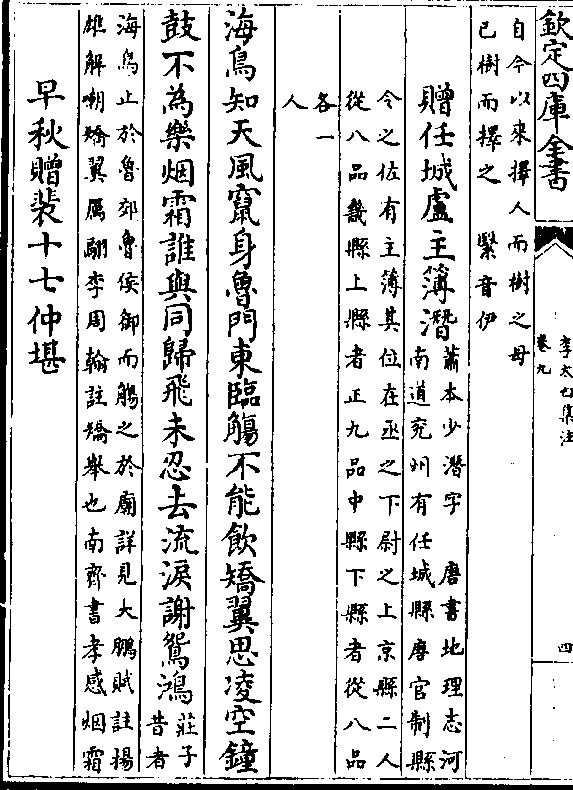 欽定四庫全書
李太白集注
卷九
四
自今以來擇人而樹之毋
已樹而擇之　緊音伊
贈任城盧主簿潛
蕭本少潛字　唐書地理志河
南道兖州有任城縣唐官制縣
令之佐有主簿其位在丞之下尉之上京縣二人
從八品畿縣上縣者正九品中縣下縣者從八品
各一
人
海鳥知天風竄身魯門東臨觴不能飲矯翼思凌空鐘
鼓不為樂烟霜誰與同歸飛未忍去流淚謝鴛鴻
莊子
昔者
海鳥止於魯郊魯侯御而觴之於廟詳見大鵬賦註揚
雄解嘲矯翼厲翮李周翰註矯舉也南齊書孝感烟霜
早秋贈裴十七仲堪